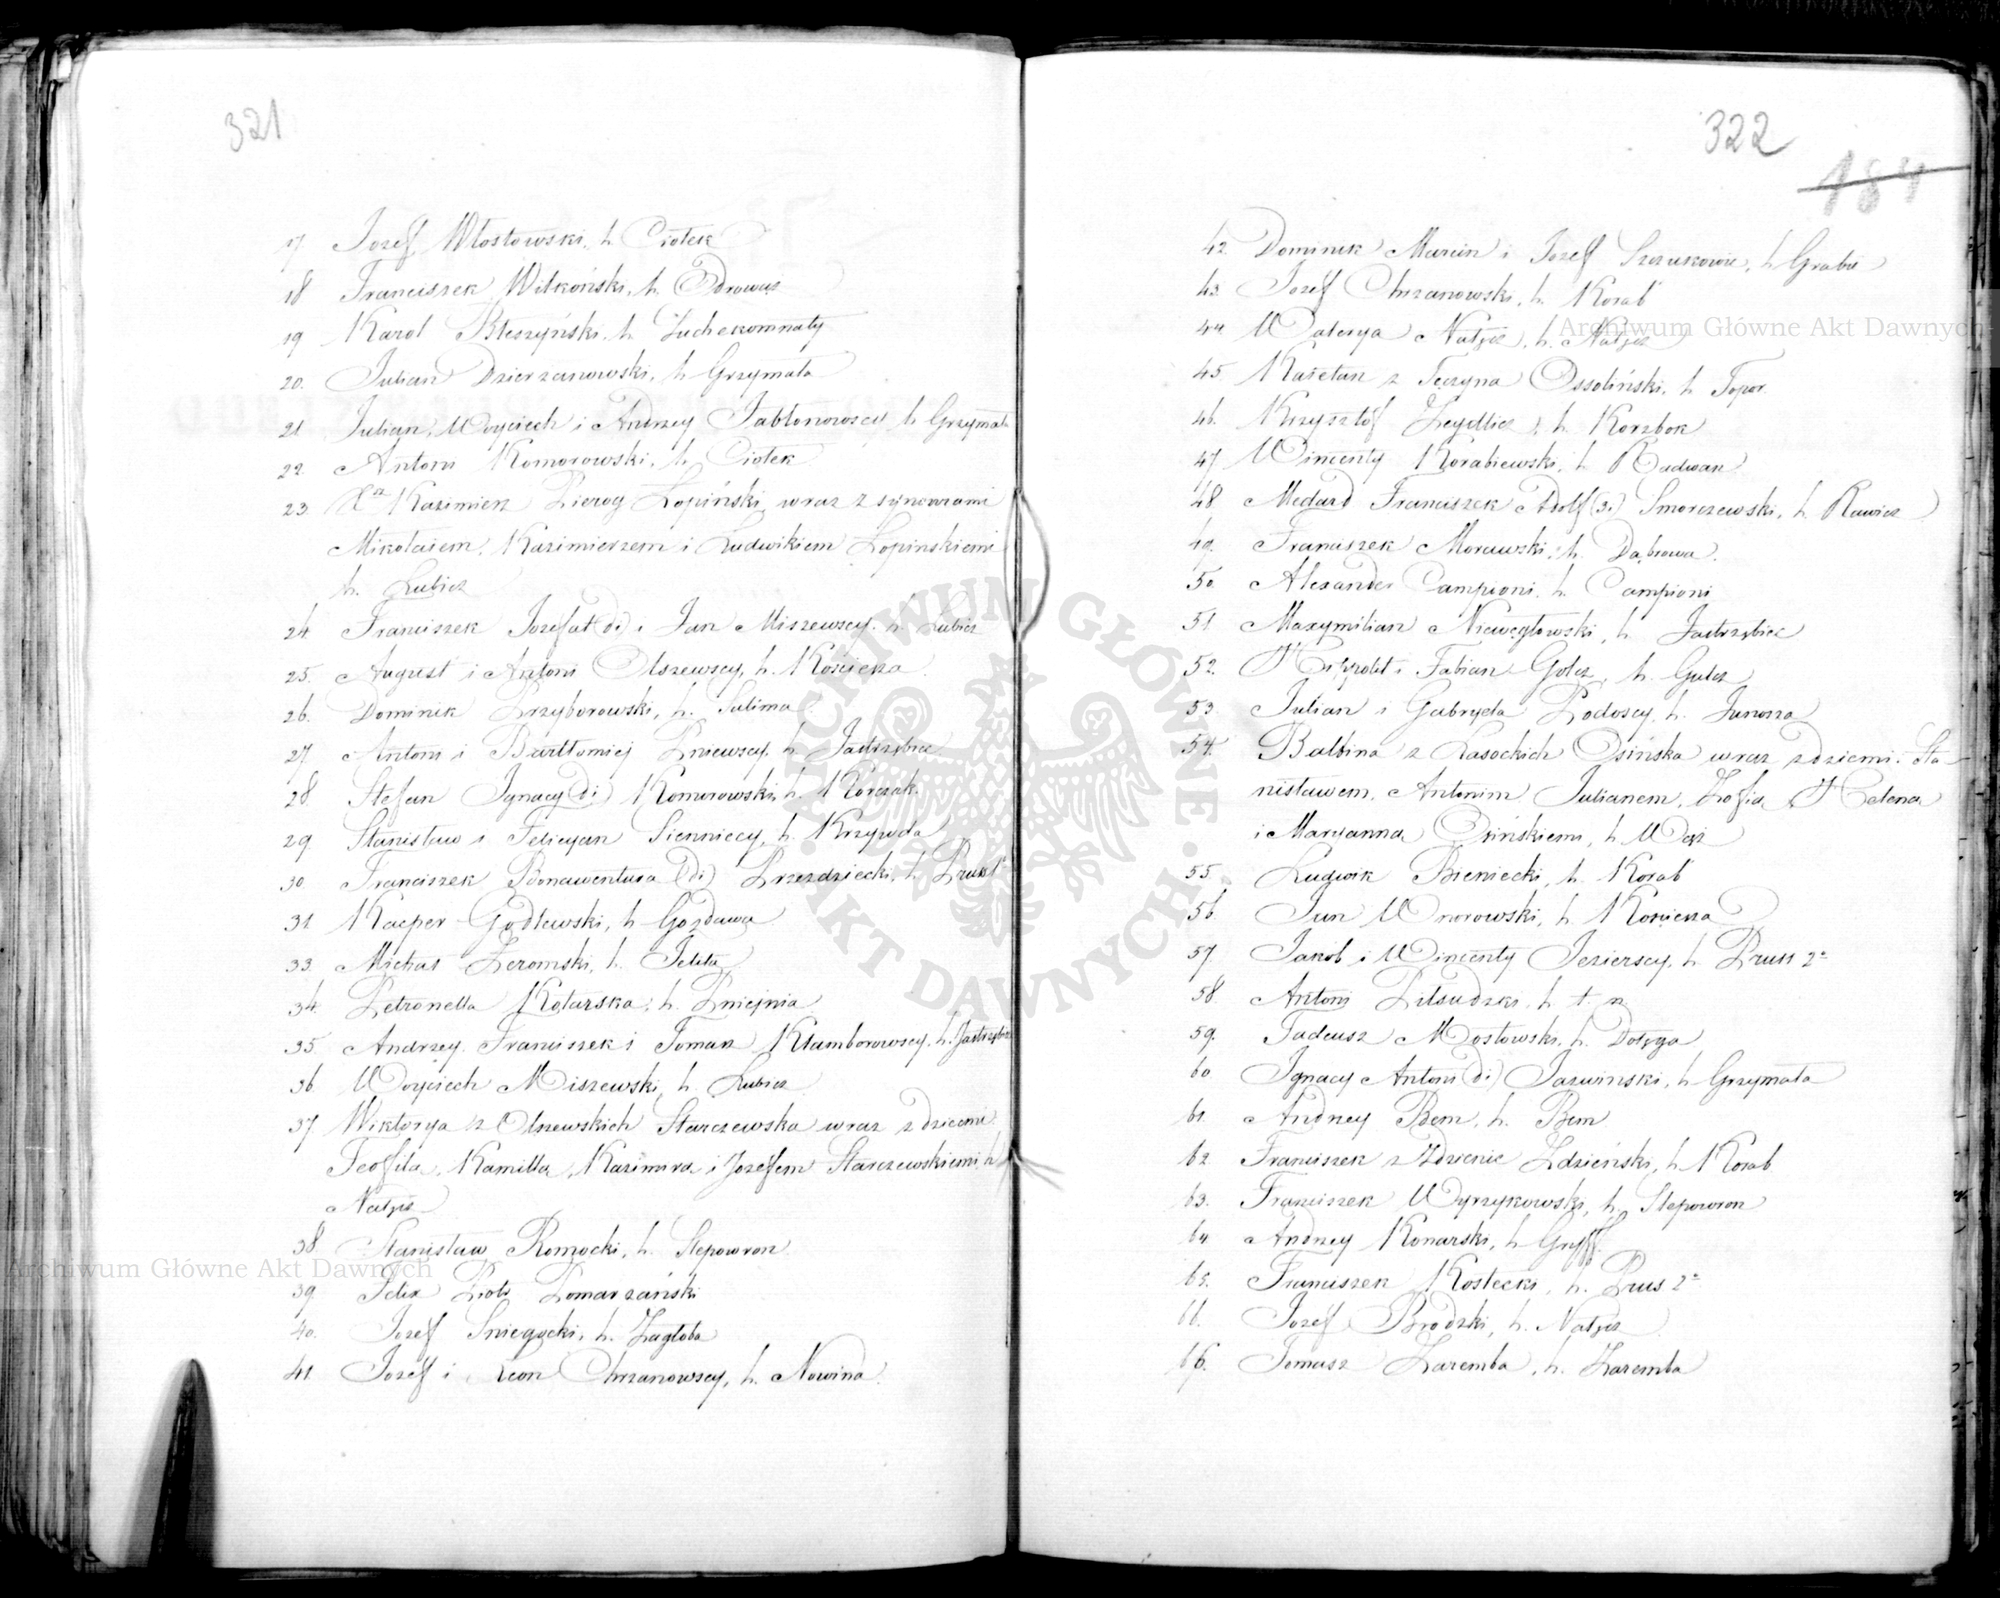 321
17 Jozef Włostowski, h. Ciołek
18 Franciszek Witkoński, h. Zdrowąż
19 Karol Błeszyński, h. Suchekomnaty
20. Julian Dzierzanowski, h. Grzymała
21 Julian, Woyciech i Andrzey Jabłonowscy h. Grzymała
22. Antoni Komorowski, h. Ciołek
23 Xdz Kazimierz Pierog Łopiński wraz z synowcami
Mikołaiem, Kazimierzem i Ludwikiem Łopinskiemi
h. Lubicz
24 Franciszek Jozefat (2i) i Jan Miszewscy, h. Lubicz
25. August i Antoni Olszewscy, h. Kościesza
26. Dominik Przyborowski, h. Sulima
27 Antoni i Bartłomiej Pniewscy, h. Jastrzębiec
28. Stefan Ignacy (2i) Komorowski, h. Korczak
29. Stanisław i Felicyan Sienniccy, h. Krzywda
30. Franciszek Bonawentura (2i) Przezdziecki, h. Prus 1°
31 Kacper Godlewski, h. Gozdawa
33. Michał Żeromski, h. Jelita
34. Petronella Kotarska, h. Pniejnia
35. Andrzey, Franciszek i Tomasz Klamborowscy, h. Jastrzębiec
36 Woyciech Miszewski, h. Lubicz
37. Wiktorya z Olszewskich Starczewska wraz z dziecmi
Teofila, Kamilla, Kazimira i Jozefem Starczewskiemi, h.
Nałęcz
38. Stanisław Romocki, h. Slepowron
39 Felix Piotr Pomarzański
40. Jozef Sniegocki, h. Zagłoba
41. Jozef i Leon Chrzanowscy, h. Nowina.
322
184
42 Dominik Marcin i Jozef Szczukowie, h. Grabie
43. Jozef Chrzanowski, h. Korab
44. Walerya Nałęcz, h. Nałęcz
45. Kaietan z Tęczyna Ossoliński, h. Topor.
46. Krzysztof Zeydlicz, h. Korzbok
47 Wincenty Korabiewski, h. Radwan
48 Medard Franciszek Adolf (3i) Smorczewski, h. Rawicz
49. Franciszek Morawski, h. Dąbrowa.
50. Alexander Campioni, h. Campioni
51 Maxymilian Niewęgłowski, h. Jastrzębiec
52. Hippolit i Fabian Golcz, h. Gulcz
53. Julian i Gabryela Podoscy, h. Junosza
54. Balbina z Łasockich Osińska wraz z dziecmi: Sta-
nisławem, Antonim, Julianem, Zofia, Helena
i Maryanna Osińskiemi, h. Wąż
55. Ludwik Bieniecki, h. Korab
56. Jan Wnorowski, h. Kościesza
57 Jakob i Wincenty Jezierscy, h. Prus 2°
58. Antoni Piłsudzki, h. t. n.
59. Tadeusz Mostowski, h. Dołęga
60 Ignacy Antoni (2i) Jazwinski, h. Grzymała
61. Andrzey Bem, h. Bem
62 Franciszek z Zdzienic Zdzieński, h. Korab
63. Franciszek Wyrzykowski, h. Slepowron
64 Andrzey Konarski, h. Gryff
65. Franciszek Kostecki, h. Prus 2°
66. Jozef Brodzki, h. Nałęcz
Tomasz Zaremba, h. Zaremba
Archiwum Główne Akt Dawnych
Archiwum Główne Akt Dawnych
ARCHIWUM GŁÓWNE · AKT DAWNYCH ·